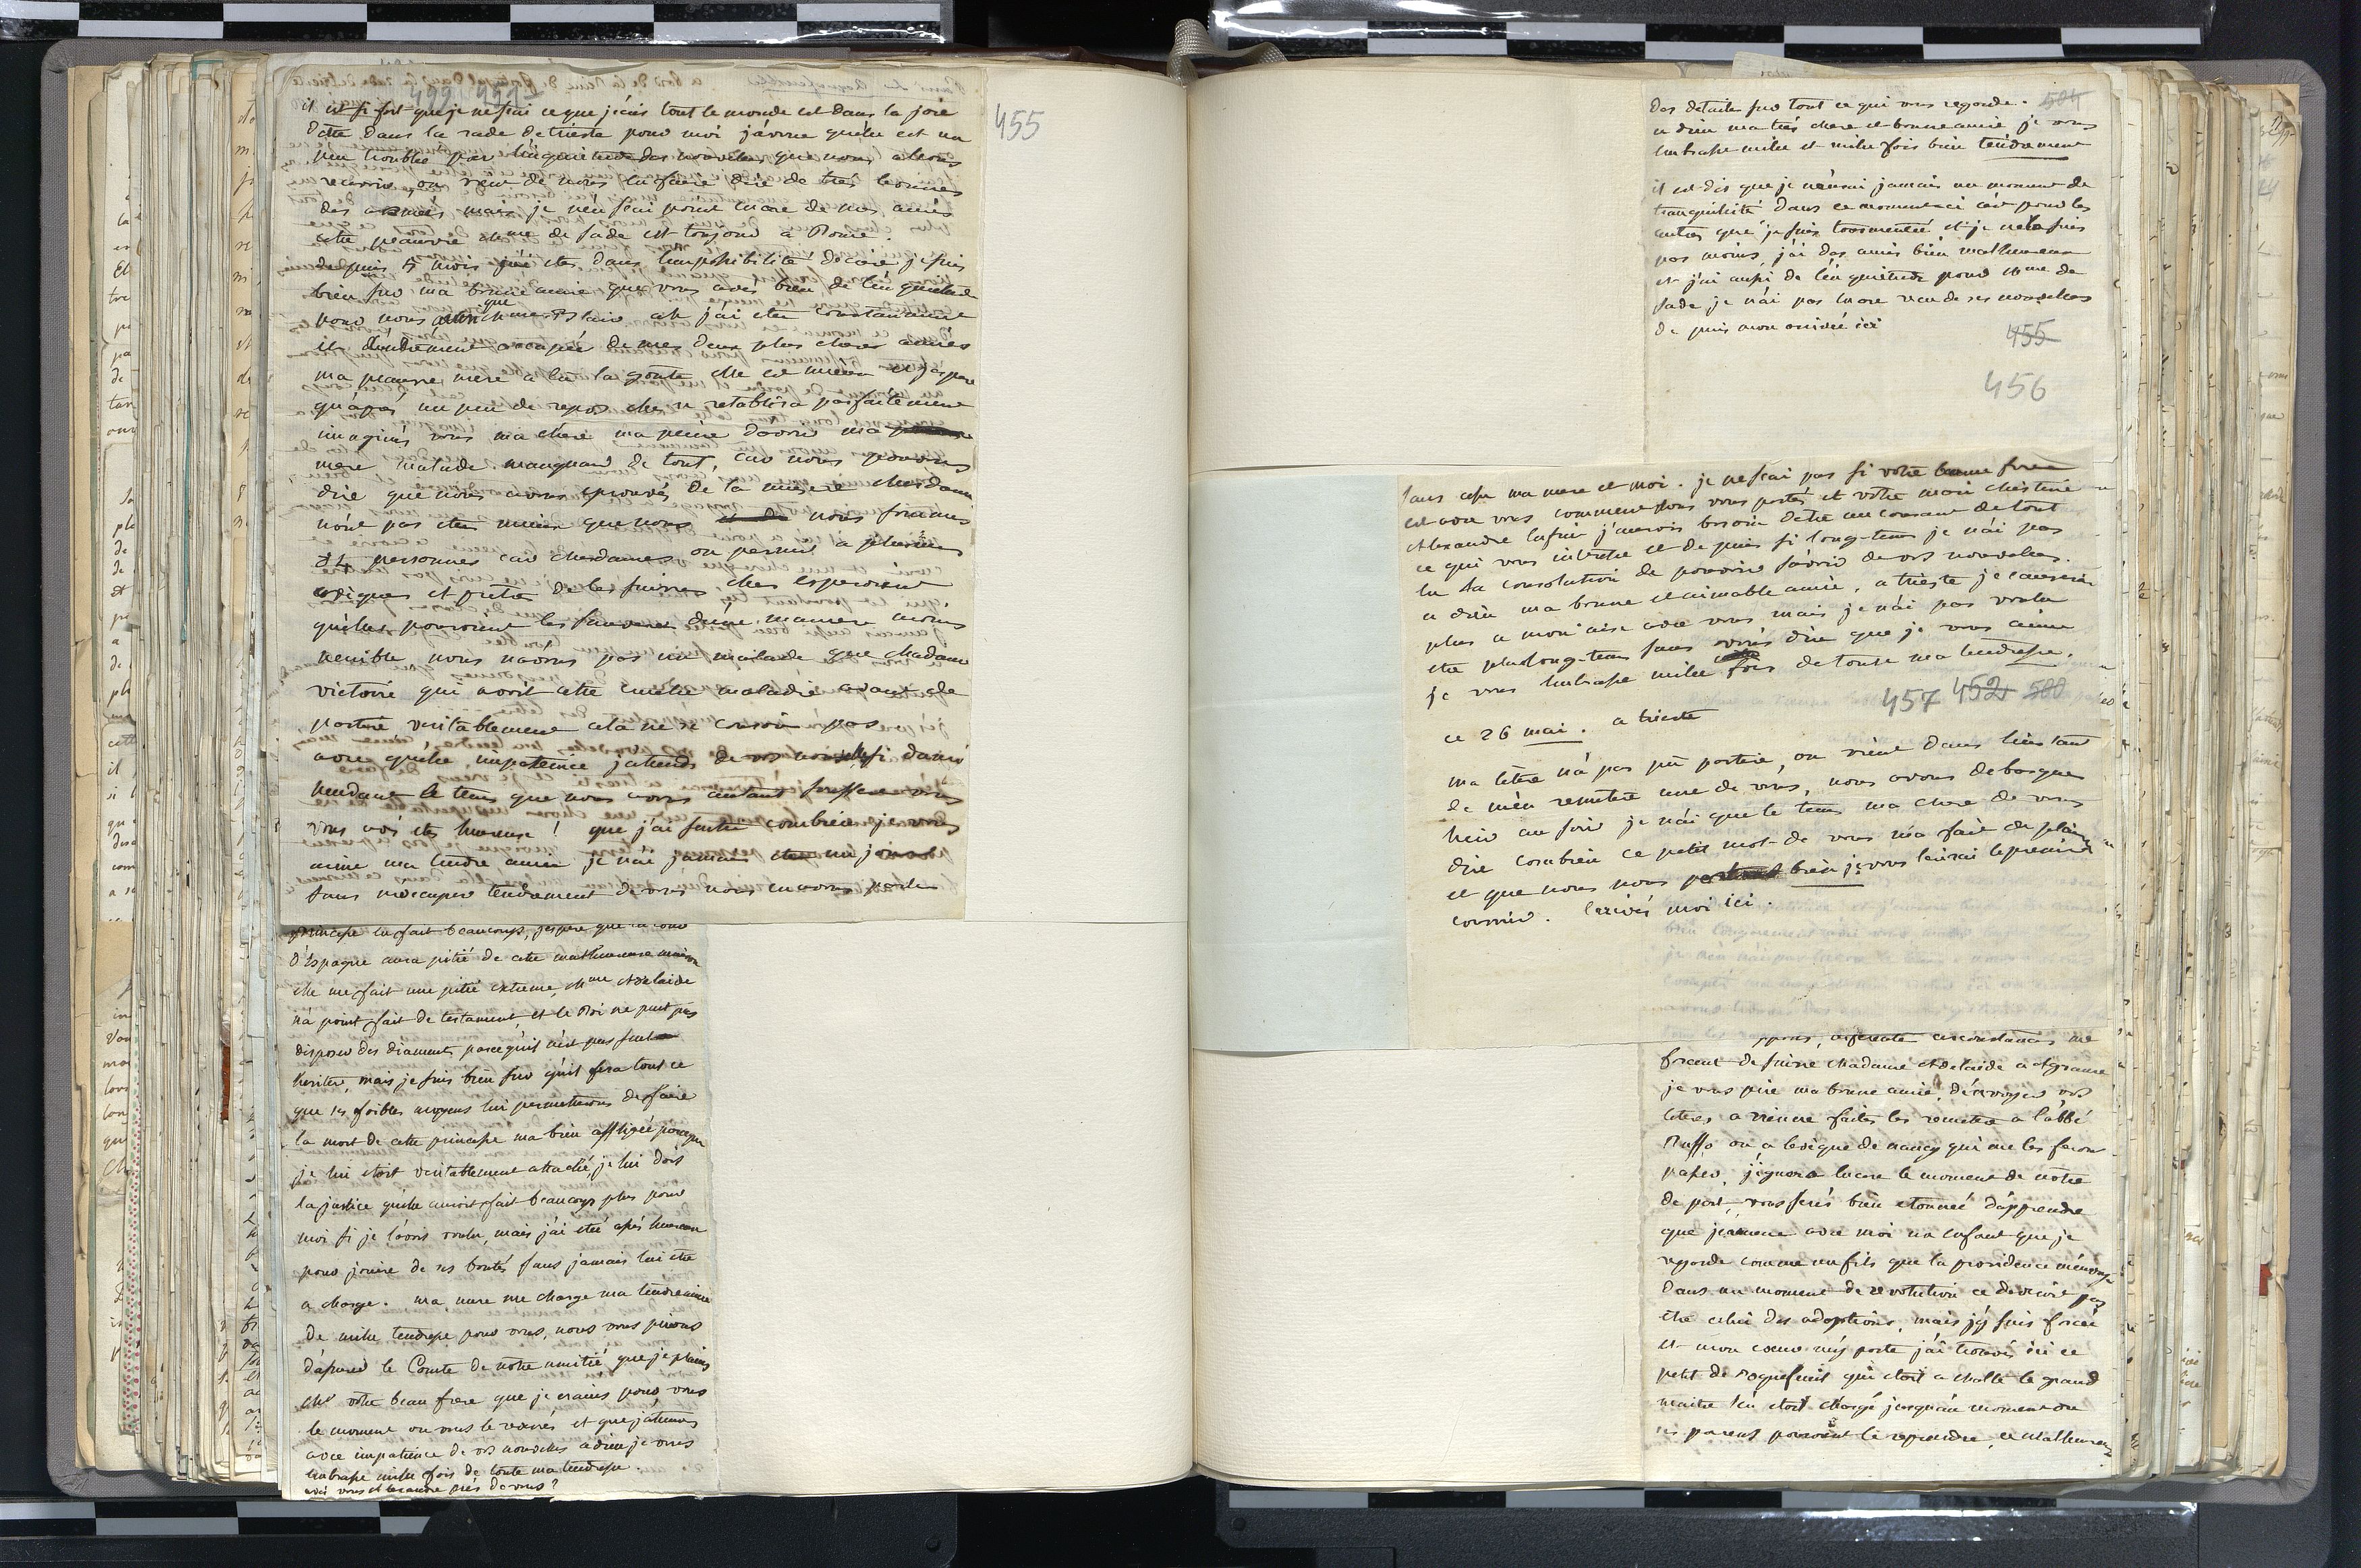 455
il est si fort que je ne scai ce que j'écris tout le monde est dans la joie
d'être dans la rade de trieste pour moi j'avoue qu'elle est un
peu troublée par l'inquietude des nouvelles que nous allons
recevoir, on vient de nous en faire dire de très bonnes
des armées mais je n'en scai point encore de nos amis
cette pauvre Mme de sade est toujours à Rome.
depuis 5 mois j'ai etés dans l'impossibilité d'ecrire je suis
bien sur ma bonne amie que vous avés bien de l'inquietude
pour nous que ah j'ai etée constamment
et tendrement occupée de mes deux plus cheres amies
ma pauvre mere a eu la goute elle est mieux et j'espere
qu'après un peu de repos elle se retablira parfaitement
imaginés vous ma chere ma peine d'avoir ma
mere malade manquant de tout, car nous pouvons
dire que nous avons eprouvés de la misere Mesdames
n'ont pas etes mieux que nous nous sommes
personnes car Mesdames on permit a plusieurs
eveques et pretres de les suivres elles esperoient
qu'elles pouroient les sauver d'une maniere moins
penible nous n'avons pas un malade que Madame
victoire qui avoit cette cruelle maladie avant de
partir veritablement cela ne se conçoit pas
avec quelle impatience j'attends de vos nouvelles
pendant le tems que nous avons autant soufferts vous
vous avés etés heureuse ! que j'ai sentie combien je vous
aime ma tendre amie je n'ai jamais eten un jour
sans m'occuper tendrement de vous nous en avons parlé
princesse en fait beaucoup, j'espere que la cour
d'Espagne aura pitié de cette malheureuse maison
elle me fait une pitié extreme, Mme Adelaide
n'a point fait de testament, et le Roi ne peut pas
disposer des diaments parcequ'il n'est pas seul
heritier, mais je suis bien sur qu'il fera tout ce
que ses foibles moyens lui permettrons de faire
la mort de cette princesse m'a bien affligée parceque
je lui etoit veritablement attaché, je lui dois
la justice qu'elle auroit fait beaucoup plus pour
moi si je l'avois voulu, mais j'ai eté assés heureuse
pour jouire de ses bontés sans jamais lui etre
a charge. ma mere me charge ma tendre amie
de mille tendresse pour vous, nous vous prions
d'assurer le Comte de notre amitié que je plains
votre beau frere que je crains pour vous
le moment ou vous le reverrés et que j'attens
avec impatience de vos nouvelles adieu je vous
embrasse mille fois de toute ma tendresse.
avés vous Alexandre près de vous ?
des details sur tout ce qui vous regarde. 504
a dieu ma très chere et bonne amie je vous
embrasse mille et mille fois bien tendrement
il est dis que je n'aurai jamais un moment de
tranquilité dans ce moment ci c'est pour les
autres que je suis tourmentée et je ne le suis
pas moins, j'ai des amis bien malheureux
et j'ai aussi de l'inquietude pour Mme de
sade je n'ai pas encore reçu de ses nouvelles
de puis mon arrivée ici
455
456
sans cesse ma mere et moi. je ne scai pas si votre bonne soeur
est avec vous comment vous vous portés et votre mari
Alexandre enfin j'aurois besoin d'etre au courant de tout
ce qui vous interesse et de puis si long-tems je n'ai pas
eu la consolation de pouvoir savoir de vos nouvelles.
a dieu ma bonne et aimable amie, a trieste je causerai
plus a mon aise avec vous mais je n'ai pas voulu
etre plus long-tems sans vous dire que je vous aime
je vous embrasse mille fois de toute ma tendresse.
457 452 500
ce 26 mai. a trieste
ma lettre n'a pas pu partir, on vient dans l'instant
de m'en remettre une de vous, nous avons debarques
hier au soir je n'ai que le tems ma chere de vous
dire combien ce petit mot de vous m'a fait de plaisir
et que nous nous portons bien je vous ecrirai le premier
courrier. ecrivés moi ici.
circonstances me
forcent de suivre Madame Adelaide a
je vous prie ma bonne amie, d'envoyer vos
lettres a vienne faites les remettre a l'abbé
Ruffo ou a l'evêque de nancy qui me les feron
passer, j'ignore encore le moment de notre
de part, vous serés bien etonnée d'apprendre
que j'emmene avec moi un enfant que je
regarde comme un fils que la providence m'envoye
dans un moment de revolution ce devroit pas
etre celui des adoptions, mais j'y suis forcée
et mon coeur m'y porte j'ai trouvés ici ce
petit de roquefeuil qui etoit a Malte le grand
maitre s'en etoit chargé jusqu'au moment ou
ses parens pouroient le reprendre, ce malheureux